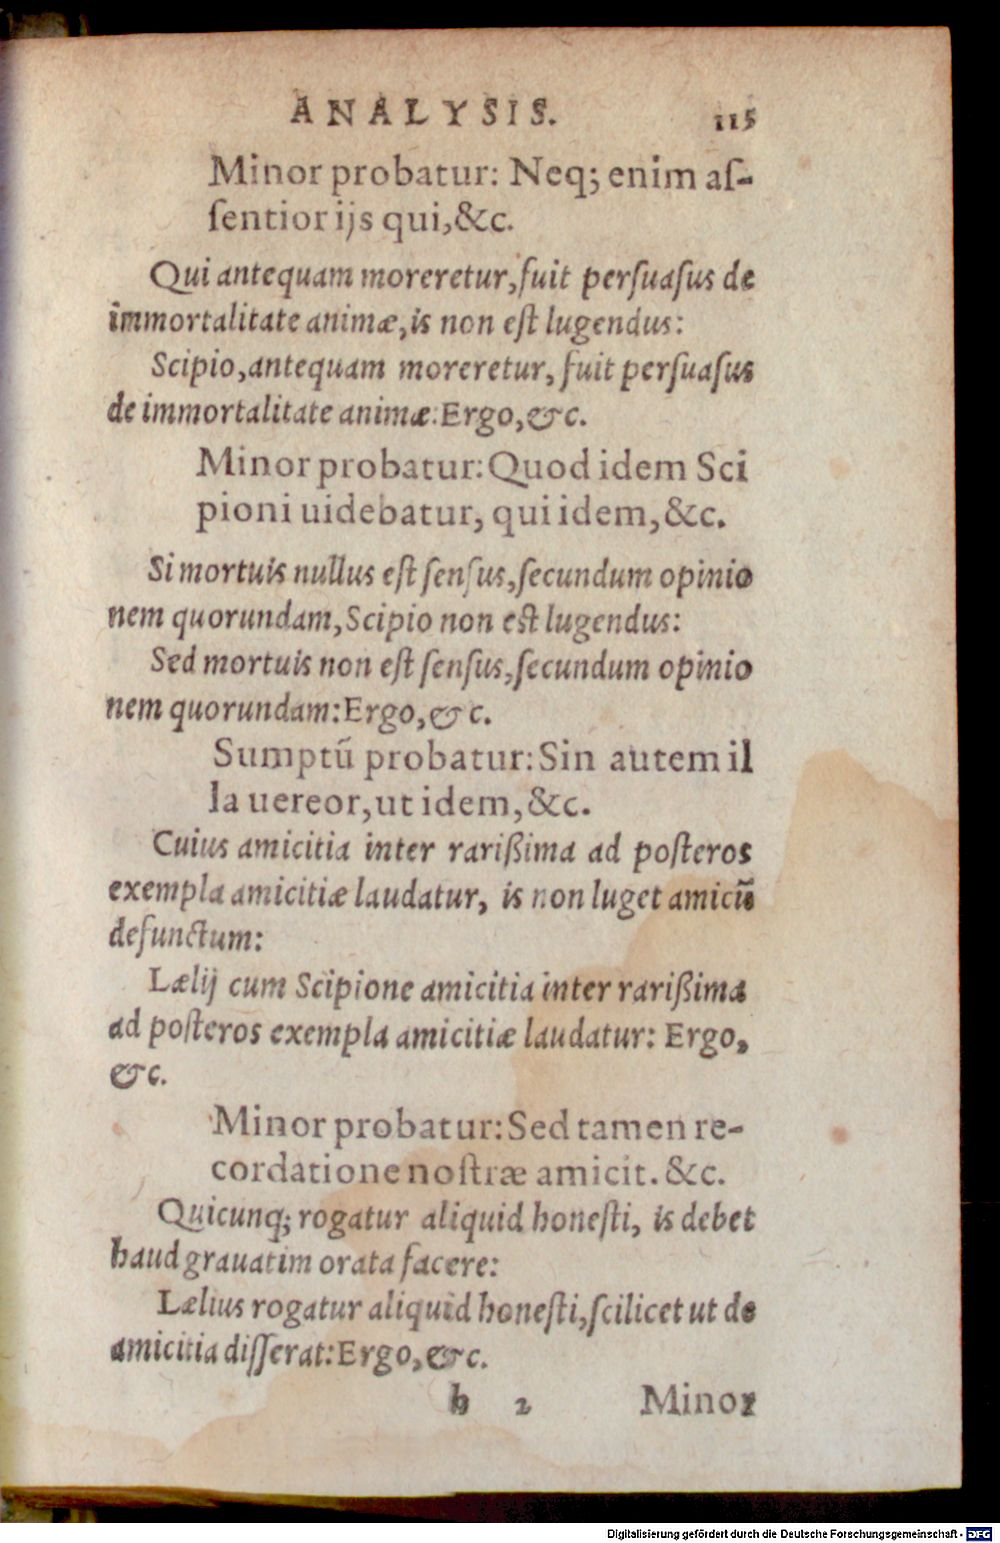 ANALYSIS. 115
Minor probatur: Neq; enim aſ-
ſentior ijs qui, &c.
Qui antequam moreretur, fuit perſuaſus de
immortalitate animæ, is non eſt lugendus:
Scipio, antequam moreretur, fuit perſuaſus
de immortalitate animæ: Ergo, &c.
Minor probatur: Quod idem Sci
pioni uidebatur, qui idem, &c.
Si mortuis nullus eſt ſenſus, ſecundum opinio
nem quorundam, Scipio non eſt lugendus:
Sed mortuis non eſt ſenſus, ſecundum opinio
nem quorundam: Ergo, &c.
Sumptũ probatur: Sin autem il
la uereor, ut idem, &c.
Cuius amicitia inter rarißima ad poſteros
exempla amicitiæ laudatur, is non luget amicũ
defunctum:
Lælij cum Scipione amicitia inter rarißima
ad poſteros exempla amicitiæ laudatur: Ergo,
&c.
Minor probatur: Sed tamen re-
cordatione noſtræ amicit. &c.
Quicunq; rogatur aliquid honeſti, is debet
haud grauatim orata facere:
Lælius rogatur aliquid honeſti, ſcilicet ut de
amicitia diſſerat: Ergo, &c.
h 2 Minor
Digitalisierung gefördert durch die Deutsche Forschungsgemeinschaft - DFG